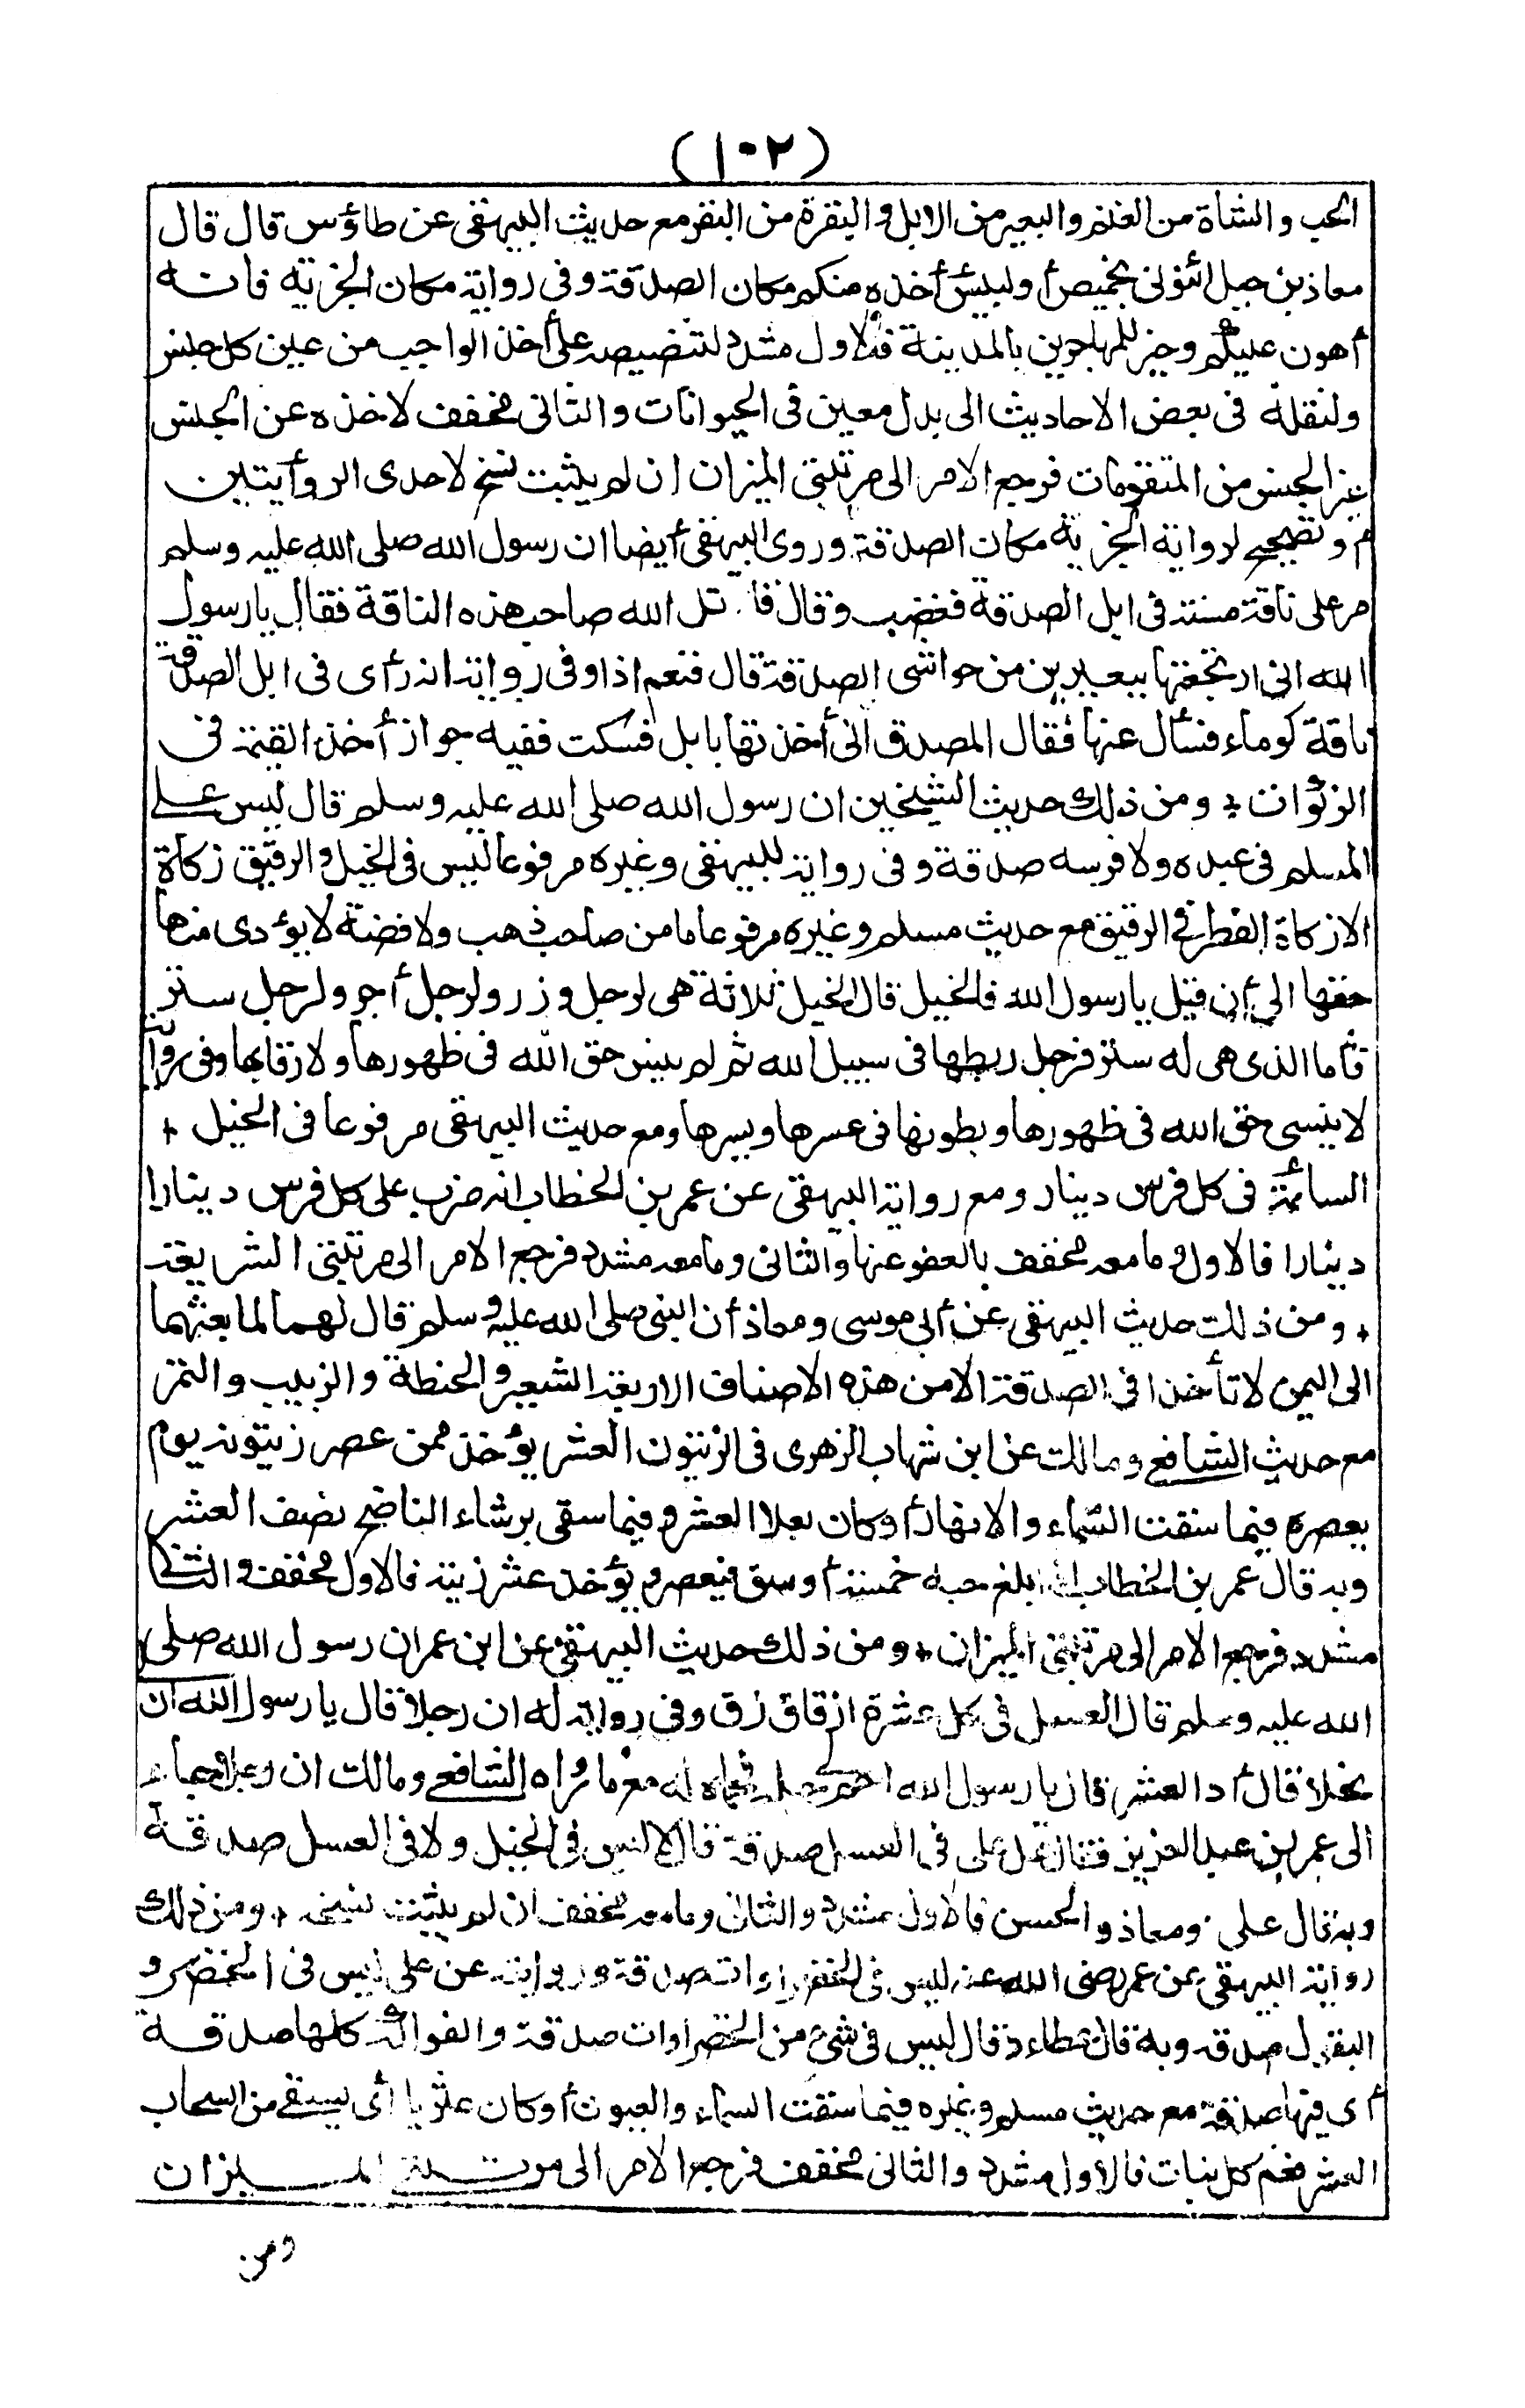 (١٠٢)
الحب والشاة من الغنم والبعير من الابل والبقرة من البقر مع حديث البيهقى عن طاؤس قال قال
معاذ بن جبل ائتونى بخميص أو لبيس أخذه منكم مكان الصدقة وفى رواية مكان الجزية فانه
أهون عليكم وخير للمهاجرين بالمدينة فالاول مشدد لتنصيصه على أخذ الواجب من عين كل جنس
ولنقله فى بعض الاحاديث الى بدل معين فى الحيوانات والثانى مخفف لاخذه عن الجنس
غير الجنس من المتقومات فرجع الامر الى مرتبتى الميزان ان لم يثبت نسخ لاحدى الروايتين
وتصحيح لرواية الجزية مكان الصدقة وروى البيهقى أيضا ان رسول الله صلى الله عليه وسلم
مر على ناقة مسنة فى ابل الصدقة فغضب وقال قاتل الله صاحب هذه الناقة فقال يارسول
الله انى ارتجعتها ببعيرين من حواشى الصدقة قال فنعم اذا وفى رواية انه رأى فى ابل الصدقة
ناقة كوماء فسأل عنها فقال المصدق انى أخذتها بابل فسكت ففيه جواز أخذ القيمة فى
الزكوات * ومن ذلك حديث الشيخين ان رسول الله صلى الله عليه وسلم قال ليس على
المسلم فى عبده ولا فرسه صدقة وفى رواية للبيهقى وغيره مرفوعا ليس فى الخيل والرقيق زكاة
الا زكاة الفطر فى الرقيق مع حديث مسلم وغيره مرفوعا ما من صاحب ذهب ولا فضة لا يؤدى منها
حقها الى أن قيل يارسول الله فالخيل قال الخيل ثلاثة هى لرجل وزر ولرجل أجر ولرجل ستر
فأما الذى هى له ستر فرجل ربطها فى سبيل الله ثم لم ينس حق الله فى ظهورها ولا رقابها وفى رواية
لا ينسى حق الله فى ظهورها وبطونها فى عسرها ويسرها ومع حديث البيهقى مرفوعا فى الخيل *
السائمة فى كل فرس دينار ومع رواية البيهقى عن عمر بن الخطاب انه ضرب على كل فرس دينارا
دينارا فالاول وما معه مخفف بالعفو عنها والثانى وما معه مشدد فرجع الامر الى مرتبتى الشريعة
* ومن ذلك حديث البيهقى عن أبى موسى ومعاذ أن النبى صلى الله عليه وسلم قال لهما لما بعثهما
الى اليمن لا تأخذا فى الصدقة الا من هذه الاصناف الاربعة الشعير والحنطة والزبيب والتمر
مع حديث الشافعى ومالك عن ابن شهاب الزهرى فى الزيتون العشر يؤخذ ممن عصر زيتونه يوم
بعصره فيما سقت السماء والانهار أو كان بعلا العشر وفيما سقى برشاء الناضح نصف العشر
وبه قال عمر بن الخطاب اذا بلغ حبه خمسة أوسق فيعصر ويؤخذ عشر زيته فالاول مخفف والثانى
مشدد فرجع الامر الى مرتبتى الميزان * ومن ذلك حديث البيهقى عن ابن عمر ان رسول الله صلى
الله عليه وسلم قال العسل فى كل عشرة ازقاق زق وفى رواية له ان رجلا قال يارسول الله ان
نخلا قال أد العشر قال يارسول الله احم فحماه له مع ما رواه الشافعى ومالك ان رجلا جاء
الى عمر بن عبد العزيز فقال هل على فى العسل صدقة قال لا ليس فى الخيل ولا فى العسل صدقة
وبه قال على ومعاذ والحسن فالاول مشدد والثانى وما معه مخفف ان لم يثبت نسخه * ومن ذلك
رواية البيهقى عن عمر رضى الله عنه ليس فى الخضراوات صدقة ورواية عن على ليس فى الخضر و
البقول صدقه وبه قال عطاء فقال ليس فى شئ من الخضراوات صدقة والفواكه كلها صدقة
أى فيها صدقة مع حديث مسلم وغيره فيما سقت السماء والعيون أو كان عثريا أى يسقى من السحاب
العشر فعم كل نبات فالاول مشدد والثانى مخفف فرجع الامر الى مرتبتى الميزان
ومن